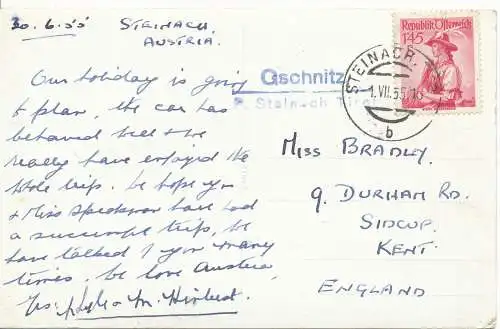 30.6.55 STEINACH,
AUSTRIA.
Our holiday is going
to plan, the car has
behaved well & we
really have enjoyed the
whole trip. We hope you
& Miss have had
a successful trip, we
have talked of you many
times. We love Austria
Yrs.
Gschnitz
P. Steinach Tirol
Republik Österreich
1.45
STEINACH
1.VII.55
b
MISS BRADLEY.
9. DURHAM RD.
SIDCUP.
KENT.
ENGLAND.